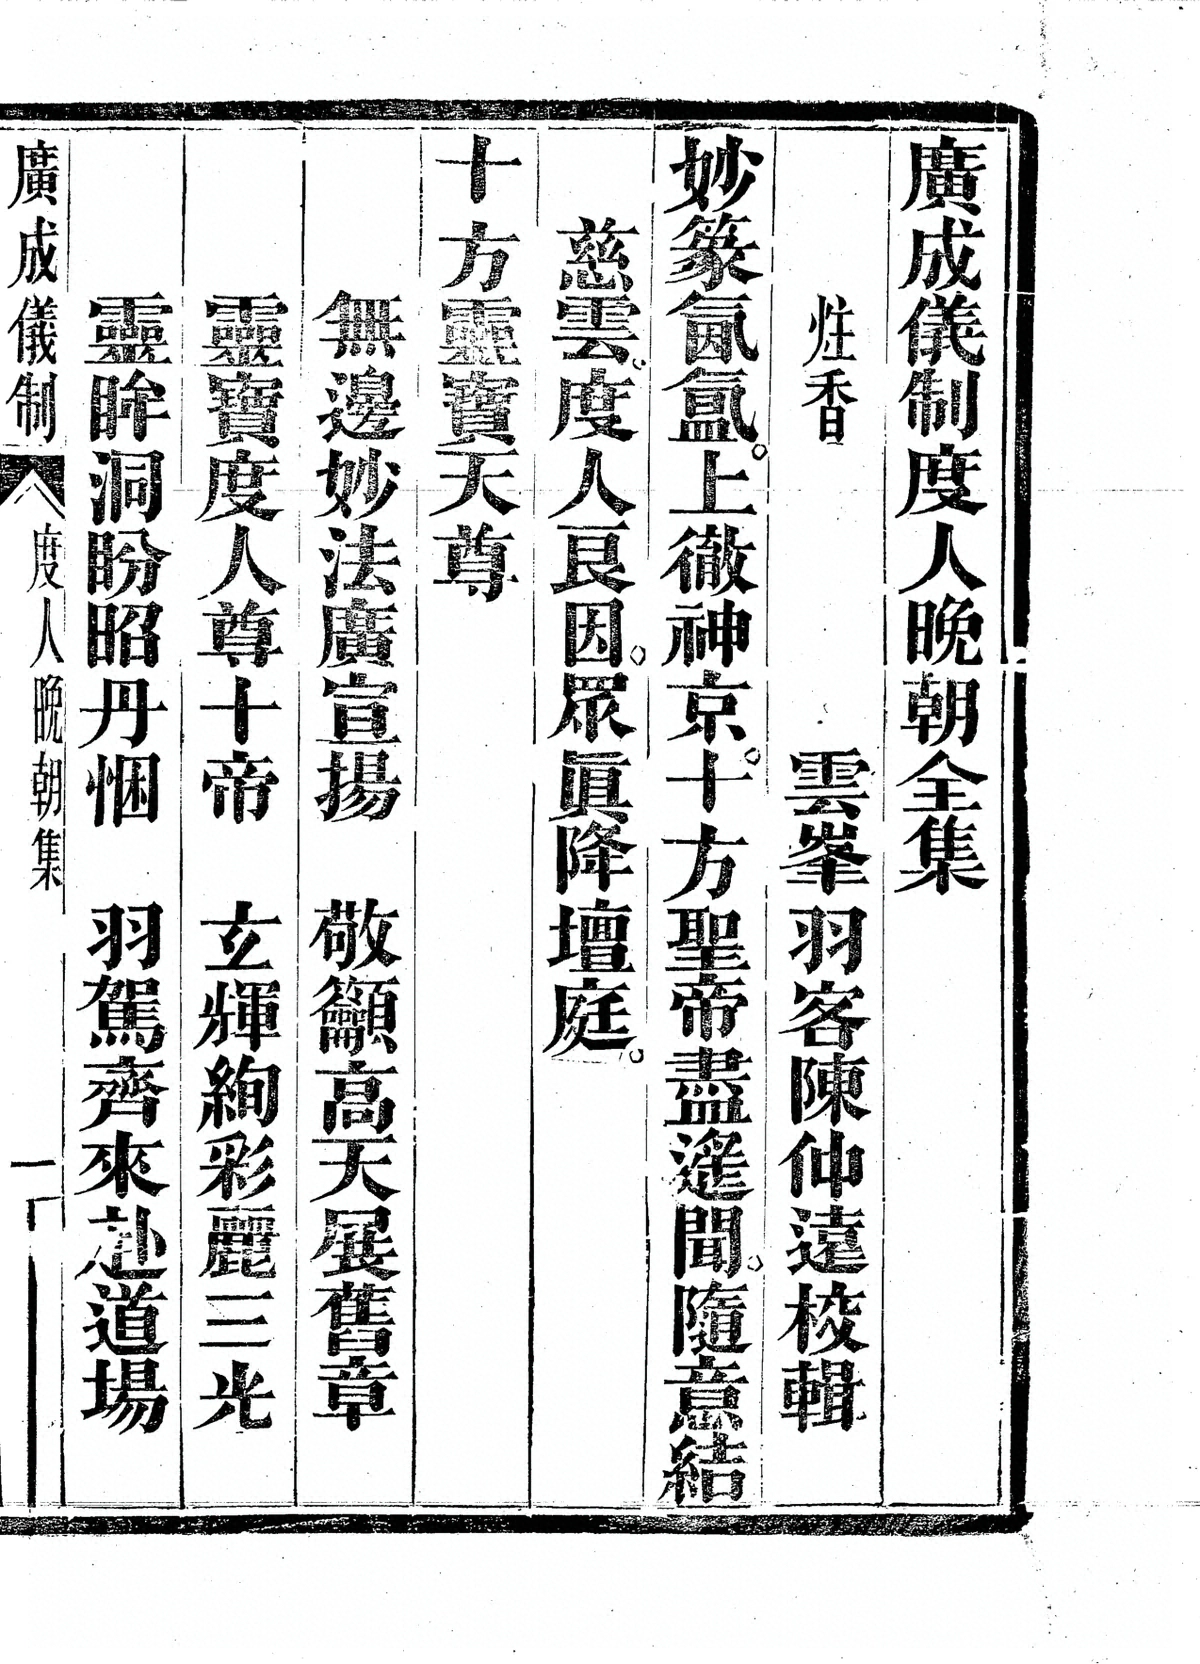 廣成儀制度人晚朝全集
炷香　雲峯羽客陳仲遠校輯
妙篆氤氳。上徹神京。十方聖帝盡遙聞。隨意結
慈雲。度人良因。眾眞降壇庭。
十方靈寶天尊
無邊妙法廣宣揚　敬籲高天展舊章
靈寶度人尊十帝　玄輝絢彩麗三光
靈眸洞盼昭丹悃　羽駕齊來赴道場
廣成儀制　度人晚朝集　一